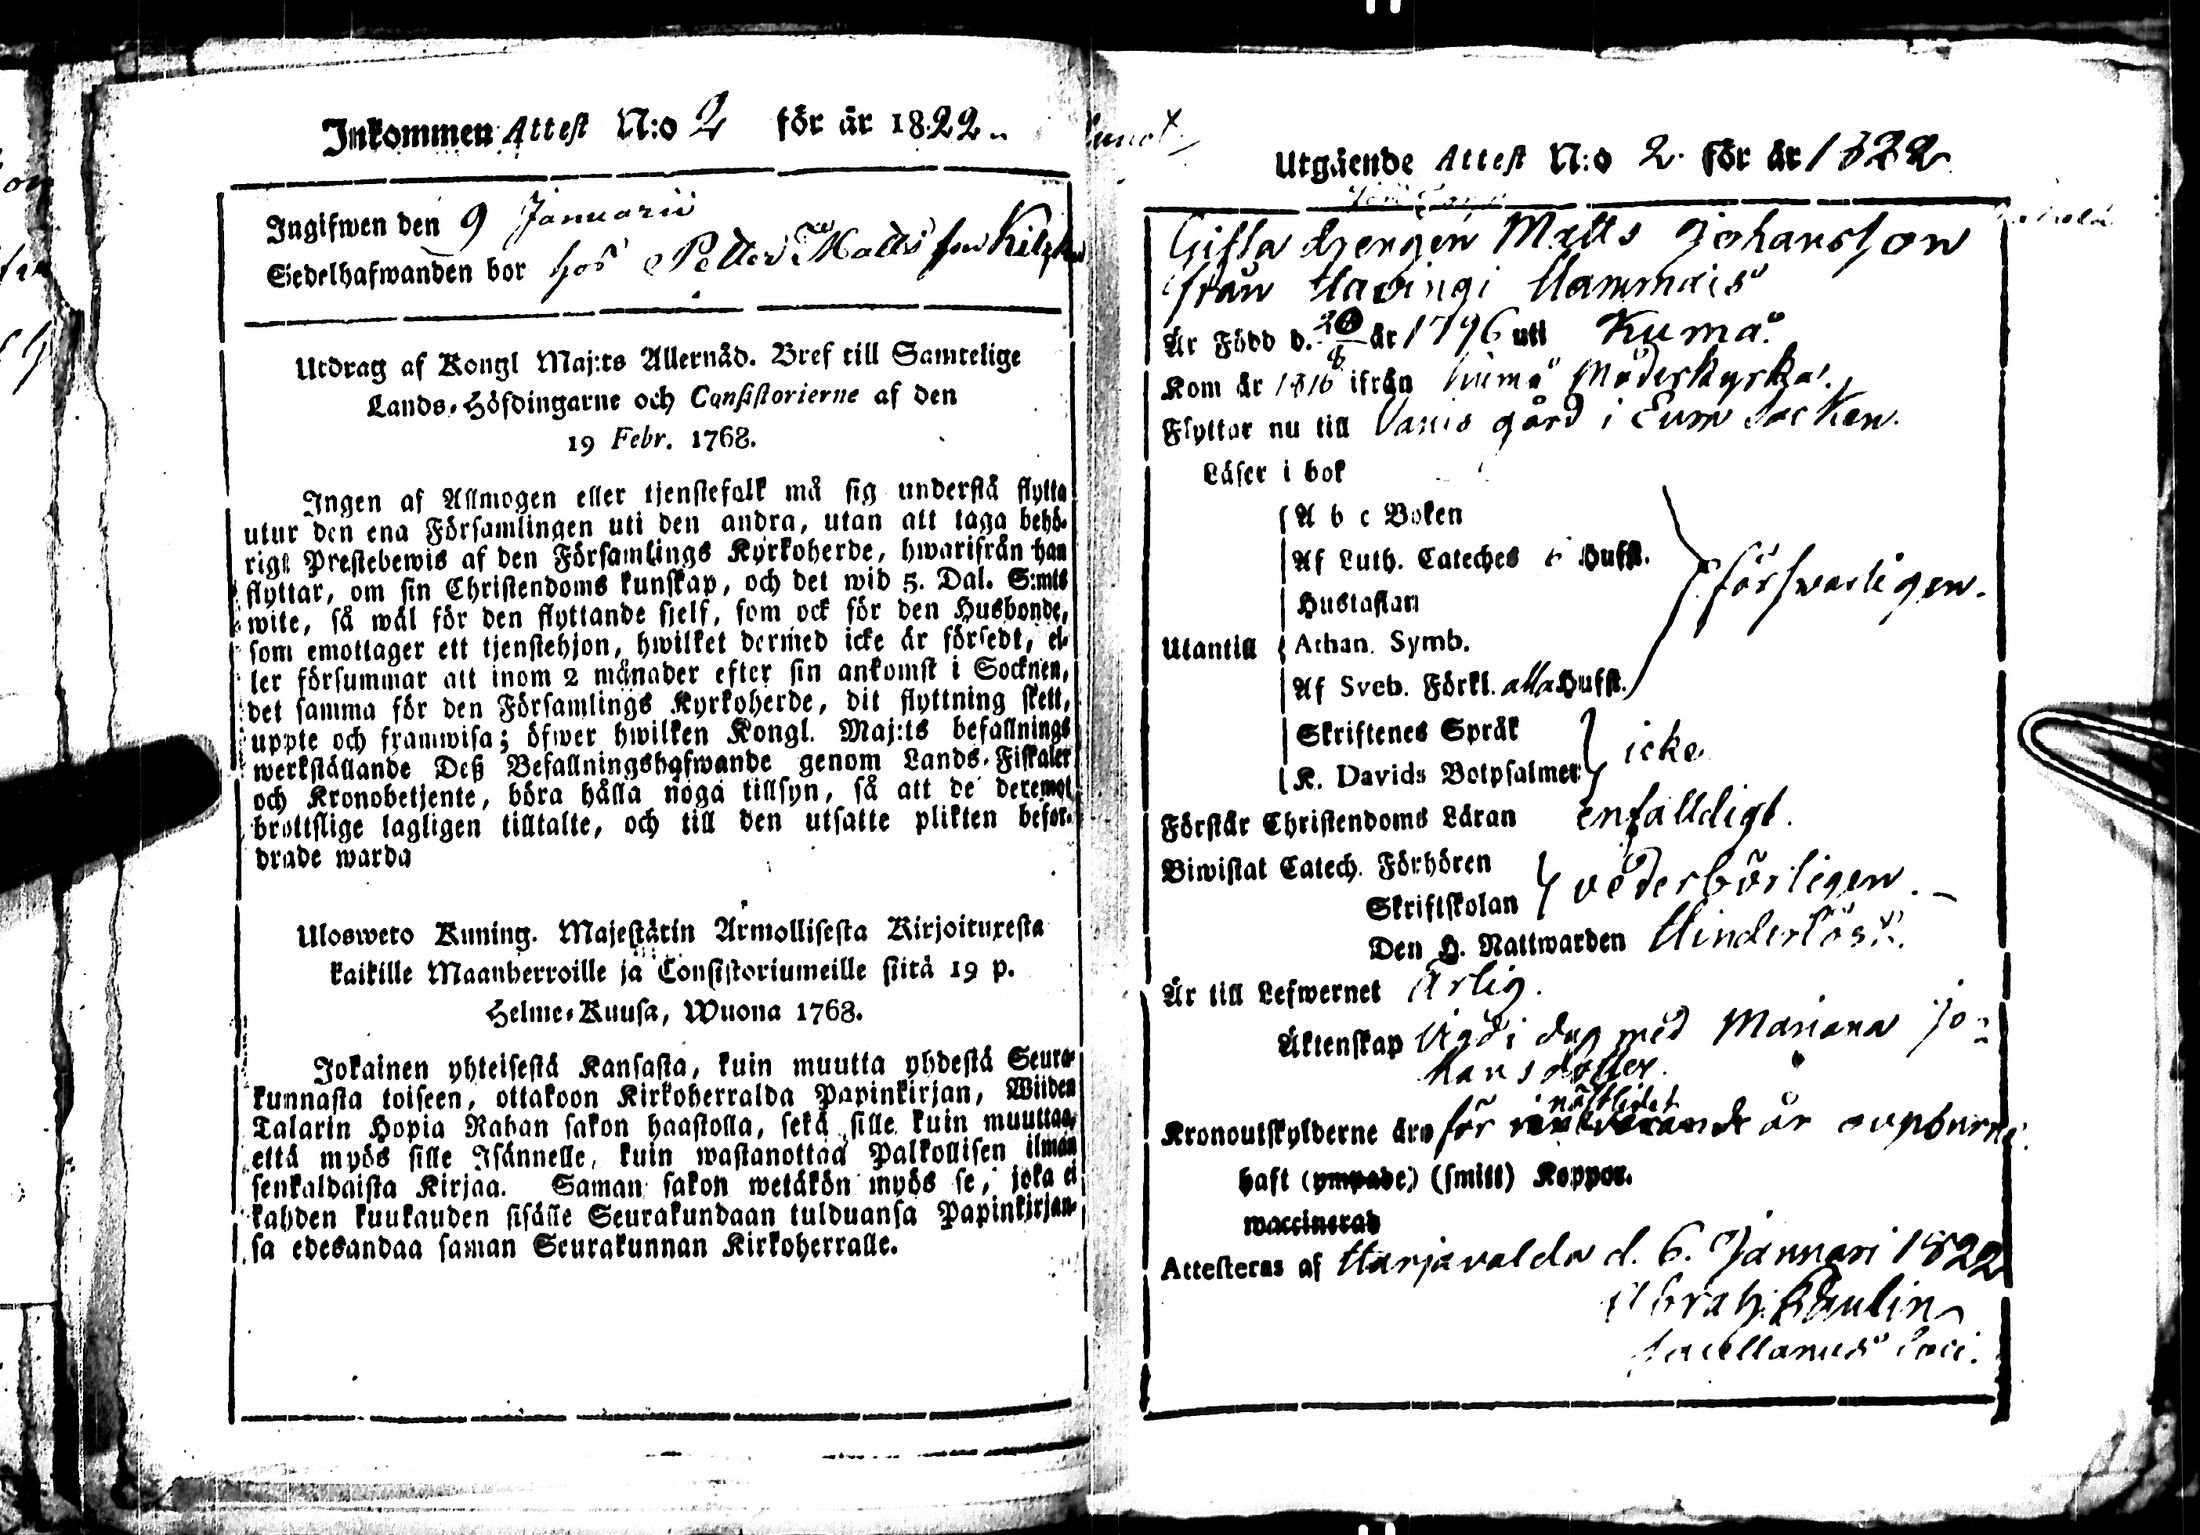 Inkommen Attest N:o 2 för år 1822
Ingifwen den 9 Januarii
Sedelhafwanden bor hos Petter Matts son
Utdrag af Kongl Maj:ts Allernåd. Bref till Samtelige
Lands-Höfdingarne och Consistorierne af den
19 Febr. 1768.
Ingen af Allmogen eller tjenstefolk må sig understå flytta
utur den ena Församlingen uti den andra, utan att taga behö-
rigt Prestebewis af den Församlings Kyrkoherde, hwarifrån han
flyttar, om sin Christendoms kunskap, och det wid 5. Dal. S:mts
wite, så wäl för den flyttande sielf, som ock för den Husbonde,
som emottager ett tjenstehjon, hwilket dermed icke är försedt, el-
ler försummar att inom 2 månader efter sin ankomst i Socknen,
det samma för den Församlings Kyrkoherde, dit flyttning skett,
uppte och framwisa; öfwer hwilken Kongl. Maj:ts befallnings
werkställande Deß Befallningshafwande genom Lands-Fiskaler
och Kronobetjente, böra hålla noga tillsyn, så att de deremot
brottslige lagligen tilltalte, och till den utsatte plikten befor-
drade warda
Ulosweto Kuning. Majestätin Armollisesta Kirjoituxesta
kaikille Maanherroille ja Consistoriumeille siitä 19 p.
Helme-Kuusa, Wuona 1768.
Jokainen yhteisestä Kansasta, kuin muutta yhdestä Seura-
kunnasta toiseen, ottakoon Kirkoherralda Papinkirjan, Wiiden
Talarin Hopia Rahan sakon haastolla, sekä sille kuin muuttaa,
että myös sille Isännelle, kuin wastanottaa Palkollisen ilman
senkaldaista Kirjaa. Saman sakon wetäkön myös se, joka ei
kahden kuukauden sisälle Seurakundaan tulduansa Papinkirjan-
sa edesandaa saman Seurakunnan Kirkoherralle.
Utgående Attest N:o 2. för år 1822
Gifta Matts Johansson
från Havingi
Är Född d. år 1796 uti Kumo
Kom år 1816 ifrån Kumo Moderkyrka.
Flyttar nu till gård i Eura Socken.
Läser i bok
A b c Boken
Af Luth. Cateches 6 Hufst.
Hustaflan
Utantill Athan. Symb. försvarligen.
Af Sveb. Förkl. alla Hufst.
Skriftenes Språk
K. Davids Botpsalmer icke
Förstår Christendoms Läran enfalldigt.
Biwistat Catech. Förhören
Skriftskolan vederbörligen.
Den H. Nattwarden Hinderlös
Är till Lefwernet Ärlig.
Äktenskap Vigd i dag med Mariana Jo-
hansdotter.
Kronoutskylderne äro för nästlidet år oupburne.
haft (ympade) (smitt) Koppor.
waccinerad
Attesteras af Harjavalda d. 6. Januari 1822
Abrah. Paulin
Sacellanus Loci.